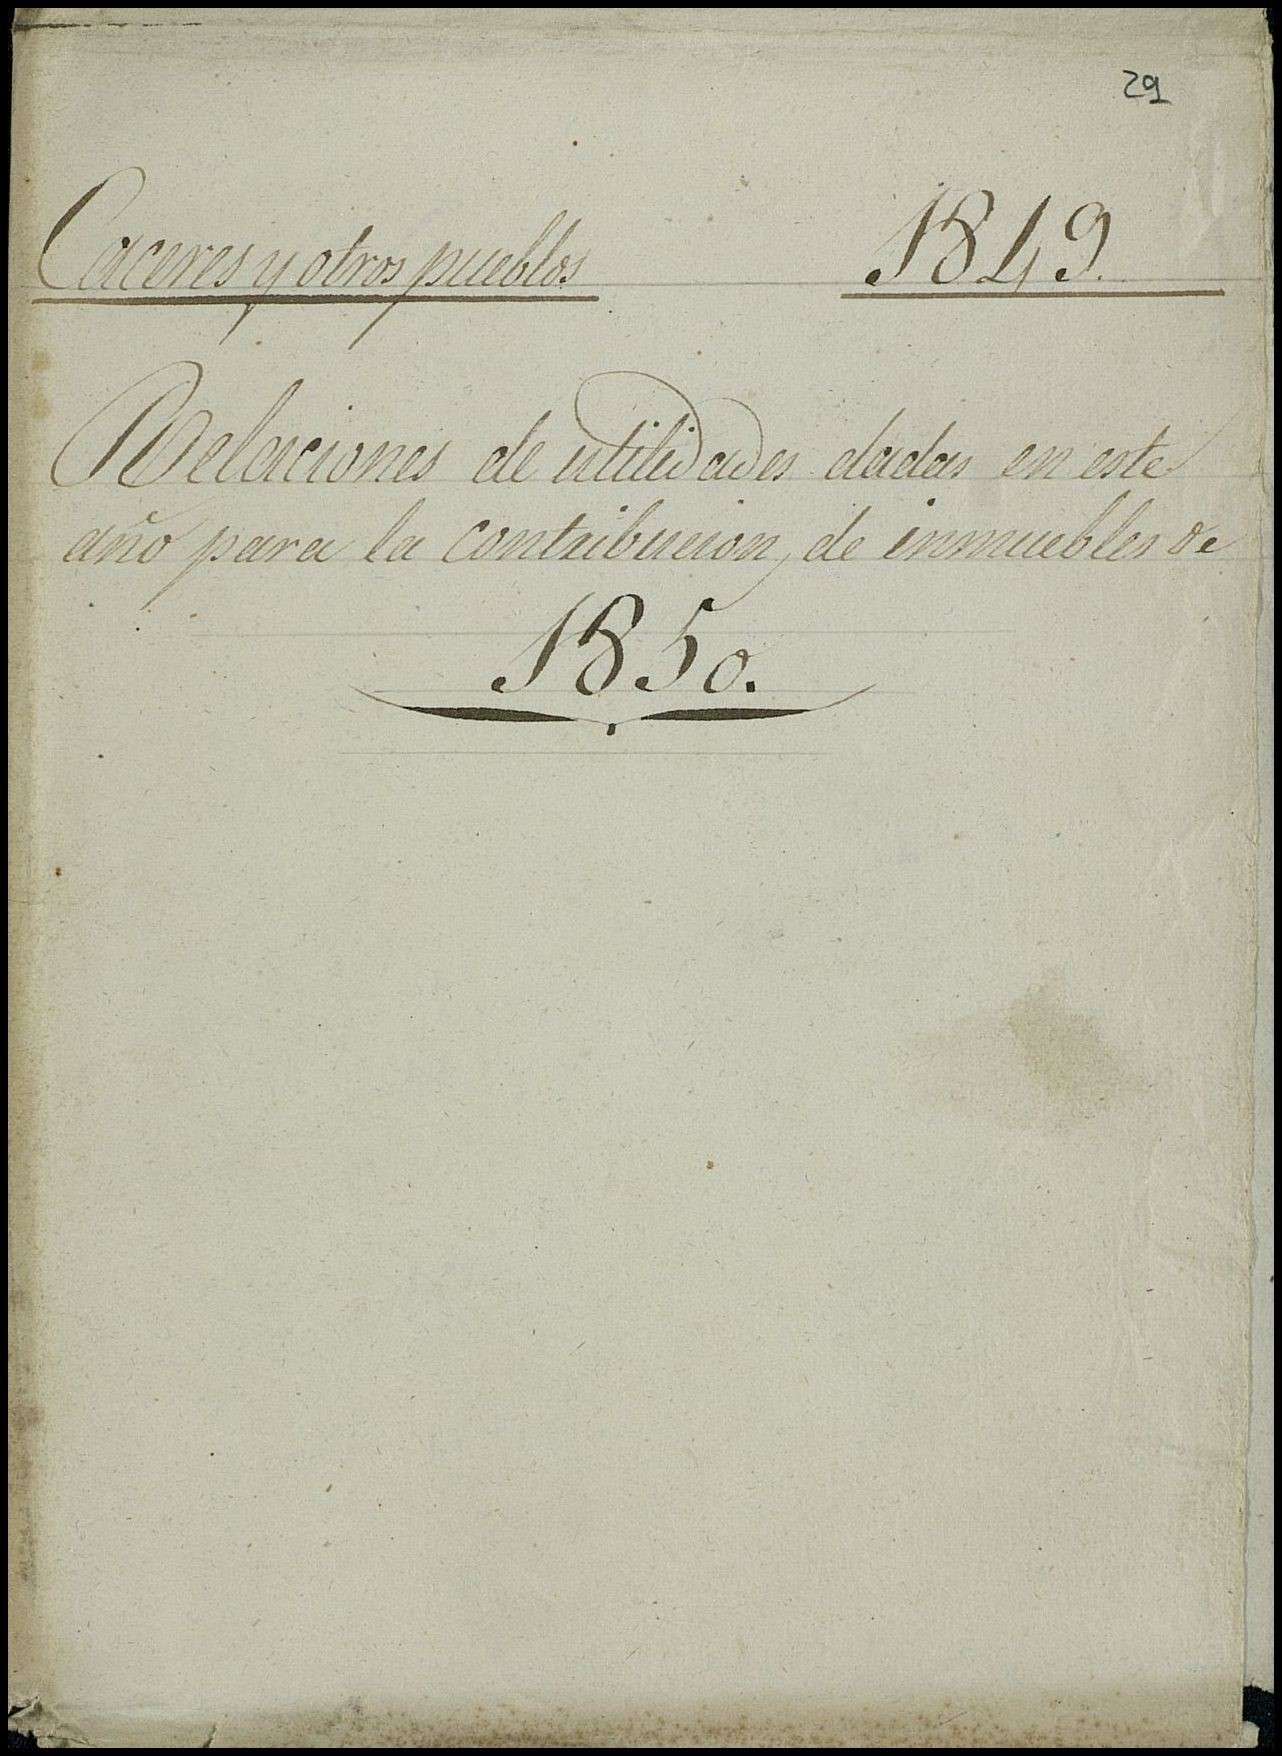 29
Caceres y otros pueblos 1849.
Relaciones de utilidades dadas en este
año para la contribucion, de inmuebles de
1850.